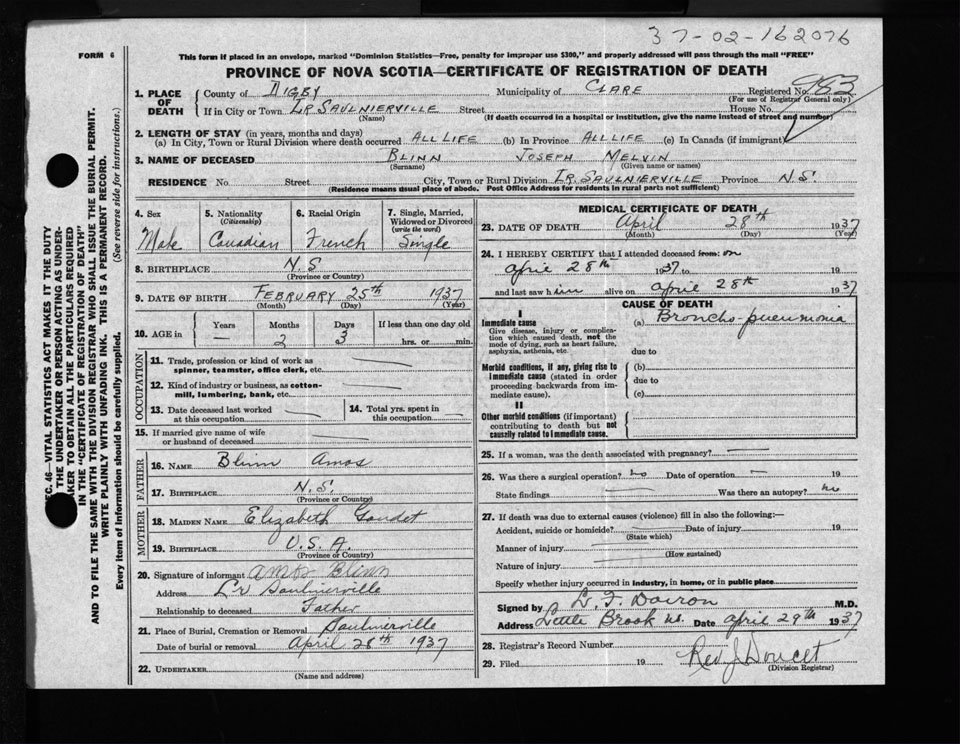 37-02-162076
FORM 6
This form if placed in an envelope, marked "Dominion Statistics—Free, penalty for improper use $300," and properly addressed will pass through the mail "FREE"
PROVINCE OF NOVA SCOTIA—CERTIFICATE OF REGISTRATION OF DEATH
1. PLACE OF DEATH County of DIGBY Municipality of CLARE Registered No. 983
(For use of Registrar General only)
If in City or Town LR SAULNIERVILLE Street House No.
(Name) (If death occurred in a hospital or institution, give the name instead of street and number)
2. LENGTH OF STAY (in years, months and days)
(a) In City, Town or Rural Division where death occurred ALL LIFE (b) In Province ALL LIFE (c) In Canada (if immigrant)
3. NAME OF DECEASED BLINN JOSEPH MELVIN
(Surname) (Given name or names)
RESIDENCE No. Street City, Town or Rural Division LR. SAULNIERVILLE Province N.S.
(Residence means usual place of abode. Post Office Address for residents in rural parts not sufficient)
4. Sex 5. Nationality (Citizenship) 6. Racial Origin 7. Single, Married, Widowed or Divorced (write the word)
Male Canadian French Single
8. BIRTHPLACE N.S
(Province or Country)
9. DATE OF BIRTH FEBRUARY 25th 1937
(Month) (Day) (Year)
10. AGE in Years Months Days If less than one day old
— 2 3 hrs. or min.
OCCUPATION
11. Trade, profession or kind of work as spinner, teamster, office clerk, etc. —
12. Kind of industry or business, as cotton-mill, lumbering, bank, etc. —
13. Date deceased last worked at this occupation — 14. Total yrs. spent in this occupation —
15. If married give name of wife or husband of deceased —
FATHER
16. NAME Blinn Amos
17. BIRTHPLACE N.S.
(Province or Country)
MOTHER
18. MAIDEN NAME Elizabeth Gaudet
19. BIRTHPLACE U.S.A.
(Province or Country)
20. Signature of informant Amos Blinn
Address Lr Saulnierville
Relationship to deceased Father
21. Place of Burial, Cremation or Removal Saulnierville
Date of burial or removal April 28th 1937
22. UNDERTAKER
(Name and address)
MEDICAL CERTIFICATE OF DEATH
23. DATE OF DEATH April 28th 1937
(Month) (Day) (Year)
24. I HEREBY CERTIFY that I attended deceased from: on
April 28th 1937 to 19
and last saw him alive on April 28th 1937
CAUSE OF DEATH
I
Immediate cause (a) Broncho-pneumonia
Give disease, injury or complication which caused death, not the mode of dying, such as heart failure, asphyxia, asthenia, etc.
due to
Morbid conditions, if any, giving rise to immediate cause (stated in order proceeding backwards from immediate cause).
(b)
due to
(c)
II
Other morbid conditions (if important) contributing to death but not causally related to immediate cause.
25. If a woman, was the death associated with pregnancy? —
26. Was there a surgical operation? no Date of operation —
State findings — Was there an autopsy? no
27. If death was due to external causes (violence) fill in also the following:—
Accident, suicide or homicide? Date of injury 19
(State which)
Manner of injury
(How sustained)
Nature of injury
Specify whether injury occurred in industry, in home, or in public place
Signed by L. F. Doiron M.D.
Address Little Brook N.S. Date April 29th 1937
28. Registrar's Record Number
29. Filed 19 Rev J Doucet
(Division Registrar)
SEC. 46—VITAL STATISTICS ACT MAKES IT THE DUTY
OF THE UNDERTAKER OR PERSON ACTING AS UNDERTAKER TO OBTAIN ALL THE PARTICULARS REQUIRED
IN THE "CERTIFICATE OF REGISTRATION OF DEATH"
AND TO FILE THE SAME WITH THE DIVISION REGISTRAR WHO SHALL ISSUE THE BURIAL PERMIT.
WRITE PLAINLY WITH UNFADING INK. THIS IS A PERMANENT RECORD.
Every item of information should be carefully supplied. (See reverse side for instructions.)